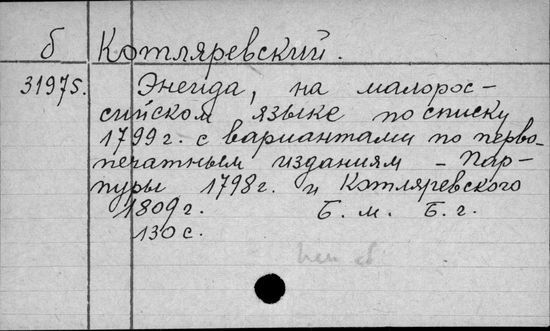 б Котляревский.
31975. Энеида, на малорос-
сийском языке по списку
1799 г. с вариантами по перво-
печатным изданиям - Пар-
пуры 1798 г. и Котляревского
1809 г. Б. м. Б. г.
130 с.